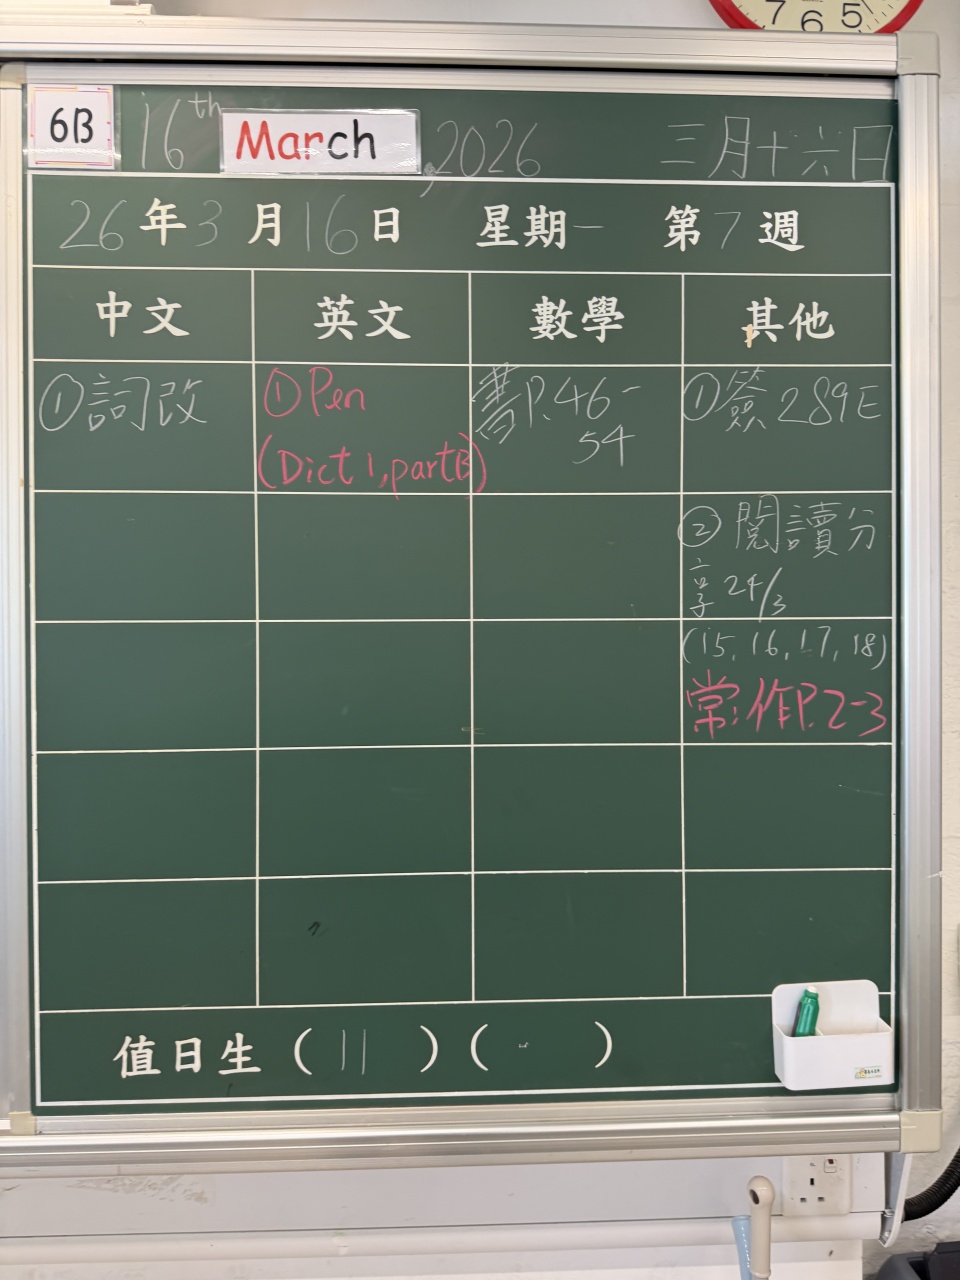 7 6 5
6B 16th March, 2026 三月十六日
26年3月16日 星期一 第7週
中文 英文 數學 其他
①詞改
①Pen
(Dict 1, part B)
書P.46-
54
①簽289E
②閱讀分
享24/3
(15, 16, 17, 18)
常:作P.2-3
值日生 ( 11 ) ( )